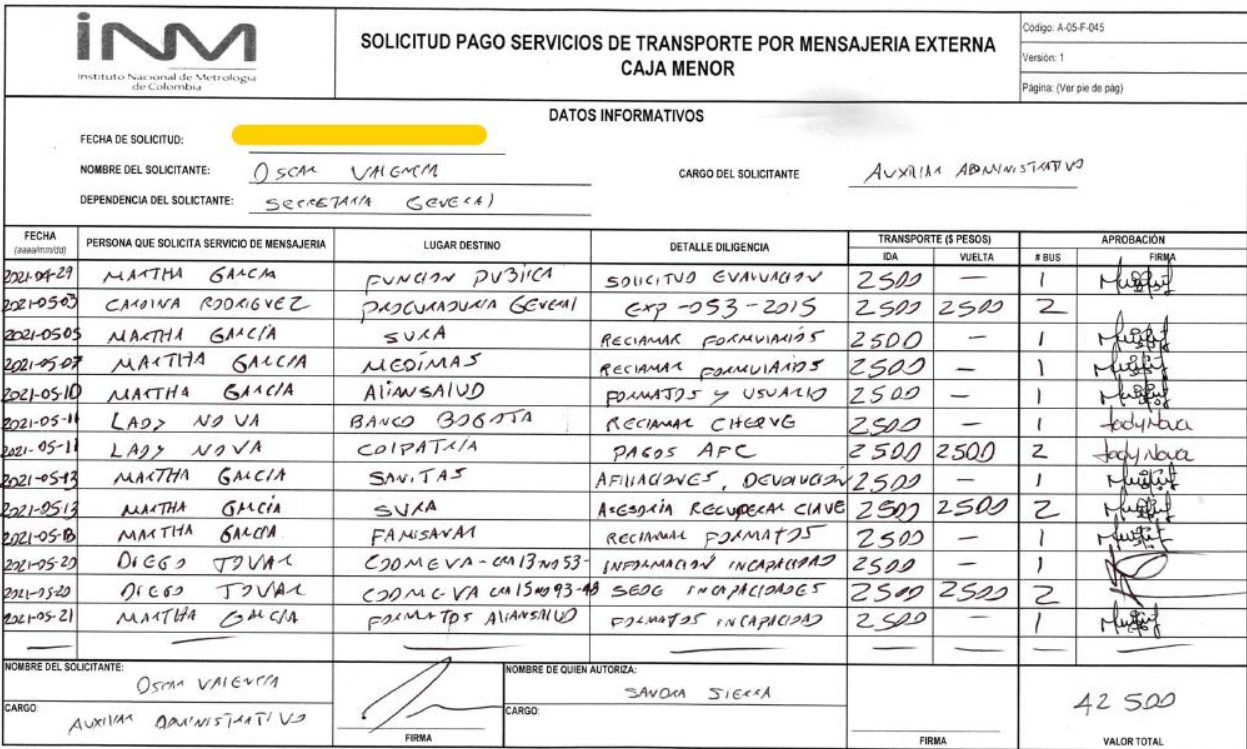 iNM
Instituto Nacional de Metrología
de Colombia
SOLICITUD PAGO SERVICIOS DE TRANSPORTE POR MENSAJERIA EXTERNA
CAJA MENOR
Código: A-05-F-045
Versión: 1
Página: (Ver pie de pág)
DATOS INFORMATIVOS
FECHA DE SOLICITUD:
NOMBRE DEL SOLICITANTE: OSCAR VALENCIA CARGO DEL SOLICITANTE AUXILIAR ADMINISTRATIVO
DEPENDENCIA DEL SOLICTANTE: SECRETARIA GENERAL
FECHA (aaaa/mm/dd) PERSONA QUE SOLICITA SERVICIO DE MENSAJERIA LUGAR DESTINO DETALLE DILIGENCIA TRANSPORTE ($ PESOS) IDA VUELTA # BUS APROBACIÓN FIRMA
2021-04-29 MARTHA GARCIA FUNCION PUBLICA SOLICITUD EVALUACION 2500 — 1
2021-05-03 CAROLINA RODRIGUEZ PROCURADURIA GENERAL EXP-053-2015 2500 2500 2
2021-0505 MARTHA GARCÍA SURA RECLAMAR FORMULARIOS 2500 — 1
2021-05-07 MARTHA GARCIA MEDIMAS RECLAMAR FORMULARIOS 2500 — 1
2021-05-10 MARTHA GARCIA ALIANSALUD FORMATOS Y USUARIO 2500 — 1
2021-05-11 LADY NOVA BANCO BOGOTA RECLAMAR CHEQUE 2500 — 1 LadyNova
2021-05-11 LADY NOVA COLPATRIA PAGOS AFC 2500 2500 2 LadyNova
2021-05-13 MARTHA GARCIA SANITAS AFILIACIONES, DEVOLUCIÓN 2500 — 1
2021-0513 MARTHA GARCÍA SURA ASESORÍA RECUPERAR CLAVE 2500 2500 2
2021-05-13 MARTHA GARCIA FAMISANAR RECLAMAR FORMATOS 2500 — 1
2021-05-20 DIEGO TOVAR COOMEVA-CRA 13 NO 53- INFORMACION INCAPACIDAD 2500 — 1
2021-05-20 DIEGO TOVAR COOMEVA CRA 15 NO 93-48 SEDE INCAPACIDADES 2500 2500 2
2021-05-21 MARTHA GARCIA FORMATOS ALIANSALUD FORMATOS INCAPACIDAD 2500 — 1
— — — — — — — —
NOMBRE DEL SOLICITANTE: OSCAR VALENCIA
CARGO: AUXILIAR ADMINISTRATIVO
FIRMA
NOMBRE DE QUIEN AUTORIZA: SANDRA SIERRA
CARGO:
FIRMA
42 500
VALOR TOTAL